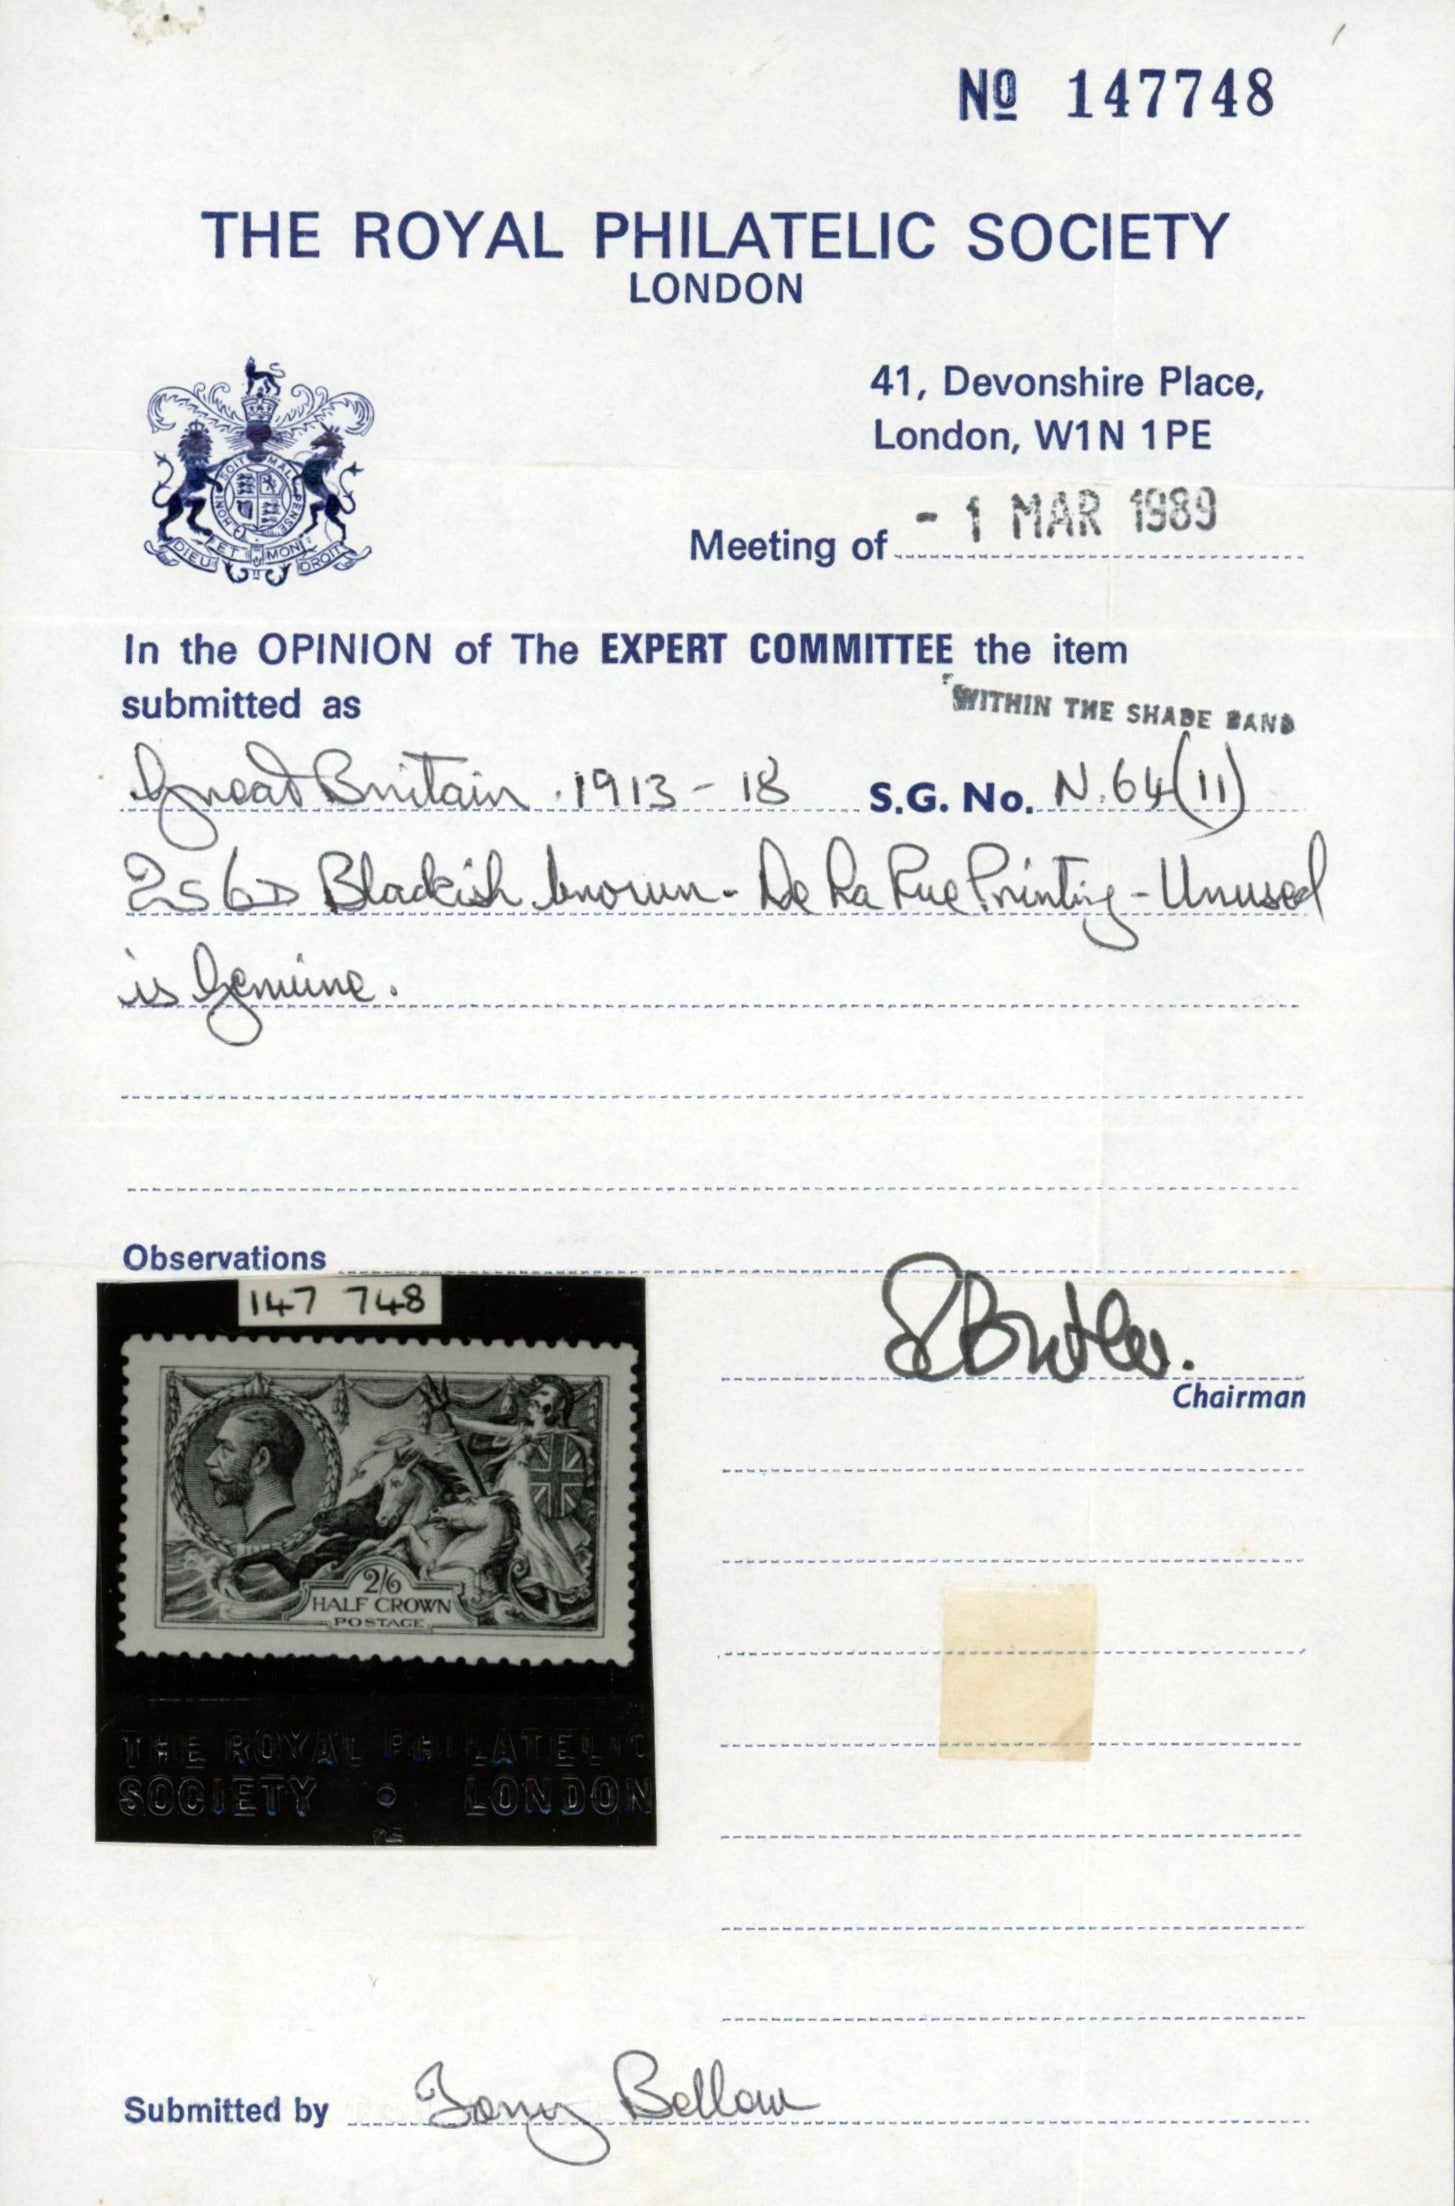 Nº 147748
THE ROYAL PHILATELIC SOCIETY
LONDON
41, Devonshire Place,
London, W1N 1PE
SOIT MAL
HONI PENSE
DIEU ET MON DROIT
Meeting of - 1 MAR 1989
In the OPINION of The EXPERT COMMITTEE the item
submitted as
WITHIN THE SHADE BAND
Great Britain . 1913 - 18 S.G. No. N.64(11)
2s 6D Blackish brown - De La Rue Printing - Unused
is Genuine.
Observations
147 748
2/6
HALF CROWN
POSTAGE
THE ROYAL PHILATELIC
SOCIETY • LONDON
Butler.
Chairman
Submitted by Tony Bellew